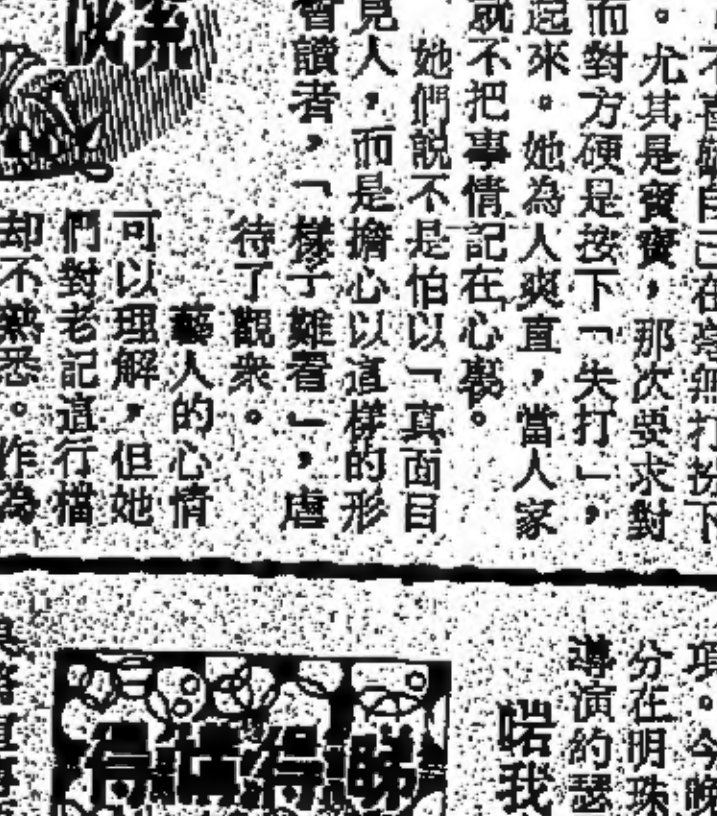 不喜歡自己在毫無打扮下
。尤其是寶寶，那次要求對
而對方硬是按下「失打」，
起來。她為人爽直，當人家
就不把事情記在心裏。
她們說不是怕以「真面目
見人，而是擔心以這樣的形
會讀者，「樣子難看」，虐
待了觀衆。
藝人的心情
可以理解，但她
們對老記這行檔
却不熟悉。作為
項。今晚
分在明珠
導演約瑟
啱我
睇得得